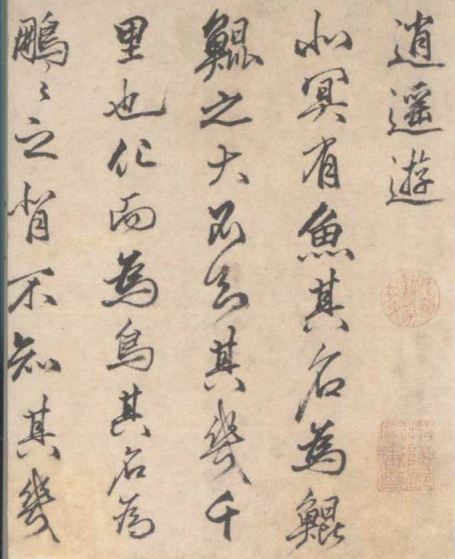 逍遥遊
北冥有魚其名為鯤
鯤之大不知其幾千
里也化而為鳥其名為
鵬々之背不知其幾